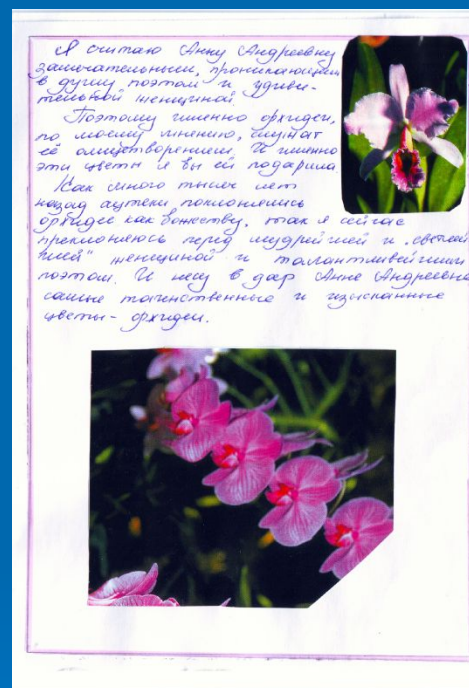 Я считаю Анну Андреевну
замечательным, проникающим
в душу поэтом и удиви-
тельной женщиной.
Поэтому именно орхидеи,
по моему мнению, служат
её олицетворением. И именно
эти цветы я бы ей подарила.
Как много тысяч лет
назад ацтеки поклонялись
орхидее как божеству, так я сейчас
преклоняюсь перед мудрейшей и „светлей
шей" женщиной и талантливейшим
поэтом. И несу в дар Анне Андреевне
самые таинственные и изысканные
цветы - орхидеи.